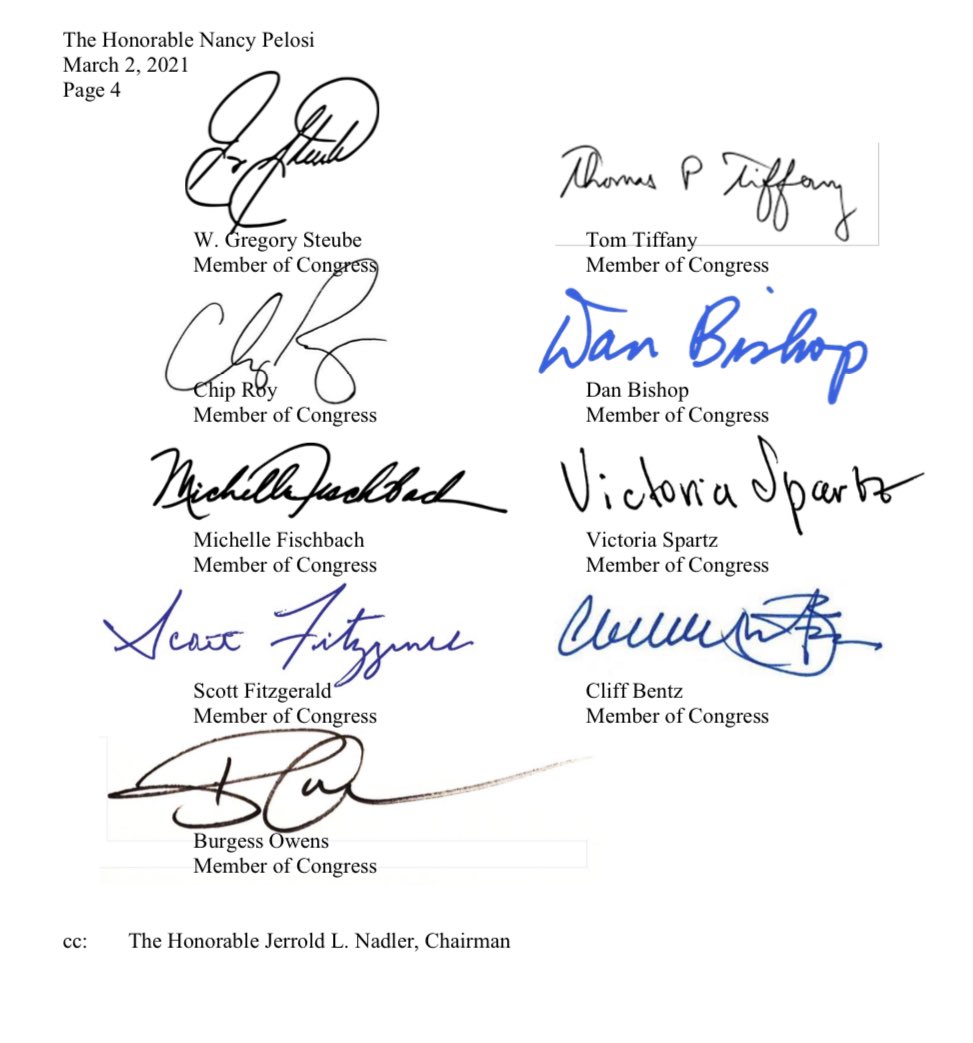 The Honorable Nancy Pelosi
March 2, 2021
Page 4
W. Gregory Steube
Member of Congress
Thomas P Tiffany
Tom Tiffany
Member of Congress
Chip Roy
Chip Roy
Member of Congress
Dan Bishop
Dan Bishop
Member of Congress
Michelle Fischbach
Michelle Fischbach
Member of Congress
Victoria Spartz
Victoria Spartz
Member of Congress
Scott Fitzgerald
Scott Fitzgerald
Member of Congress
Cliff Bentz
Member of Congress
Burgess Owens
Member of Congress
cc: The Honorable Jerrold L. Nadler, Chairman